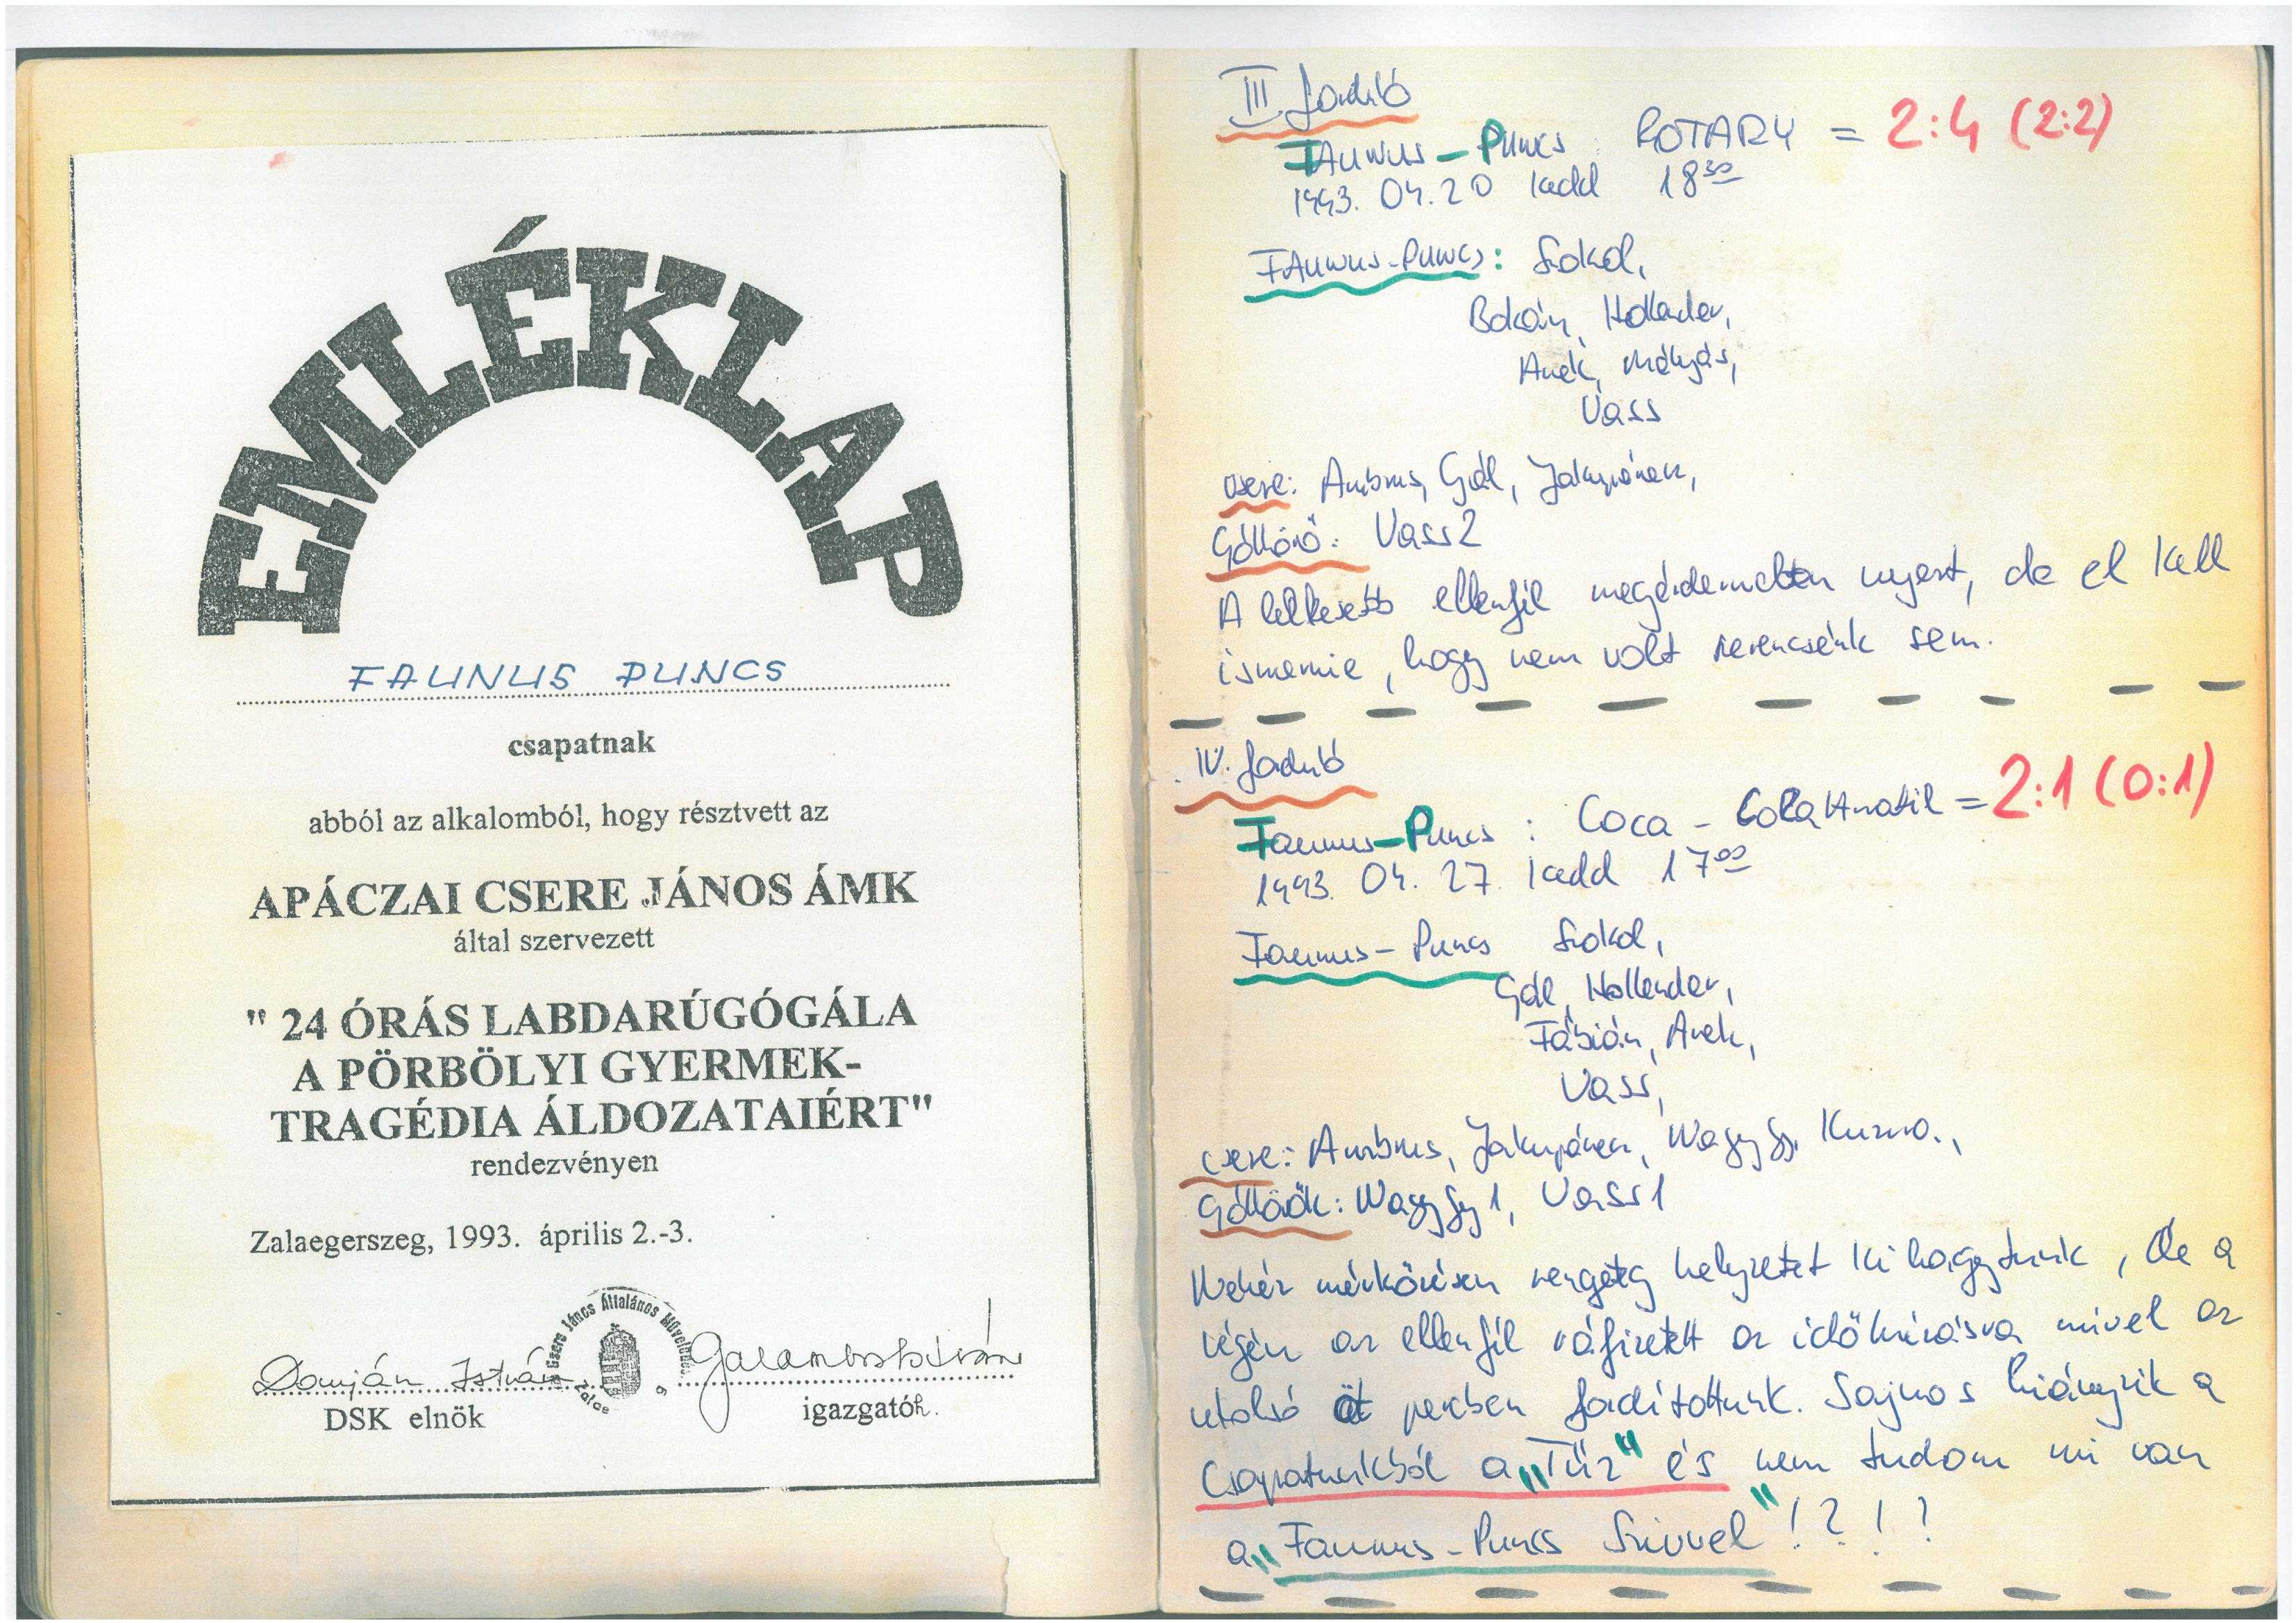 EMLÉKLAP
FAUNUS PUNCS
csapatnak
abból az alkalomból, hogy résztvett az
APÁCZAI CSERE JÁNOS ÁMK
által szervezett
" 24 ÓRÁS LABDARÚGÓGÁLA
A PÖRBÖLYI GYERMEK-
TRAGÉDIA ÁLDOZATAIÉRT"
rendezvényen
Zalaegerszeg, 1993. április 2.-3.
Csere János Általános Művelődési
Domján István
DSK elnök
igazgatóh.
III forduló
FAUNUS-PUNCS : ROTARY = 2:4 (2:2)
1993. 04.20 kedd 18 30
FAUNUS-PUNCS: Szokol,
Bokán, Hollender,
Anek, Mátyás,
Vass
csere: Ambrus, Gál,
Góllövő: Vass 2
A lelkesebb ellenfél megérdemelten nyert, de el kell
ismernie, hogy nem volt szerencsénk sem.
IV. forduló
Faunus-Puncs : Coca - Cola Amatil = 2:1 (0:1)
1993. 04. 27. kedd 17 00
Faunus-Puncs Szokol,
Gál, Hollender,
Fábián, Anek,
Vass,
csere: Ambrus, Nagy Gy.
Góllövők: Nagy Gy 1, Vass 1
Nehéz mérkőzésen rengeteg helyzetet kihagytunk, de a
végén az ellenfél ráfizetett az időhúzásra mivel az
utolsó öt percben fordítottunk. Sajnos hiányzik a
csapatunkból a „Tűz" és nem tudom mi van
a „Faunus-Puncs Szívvel"!?!?